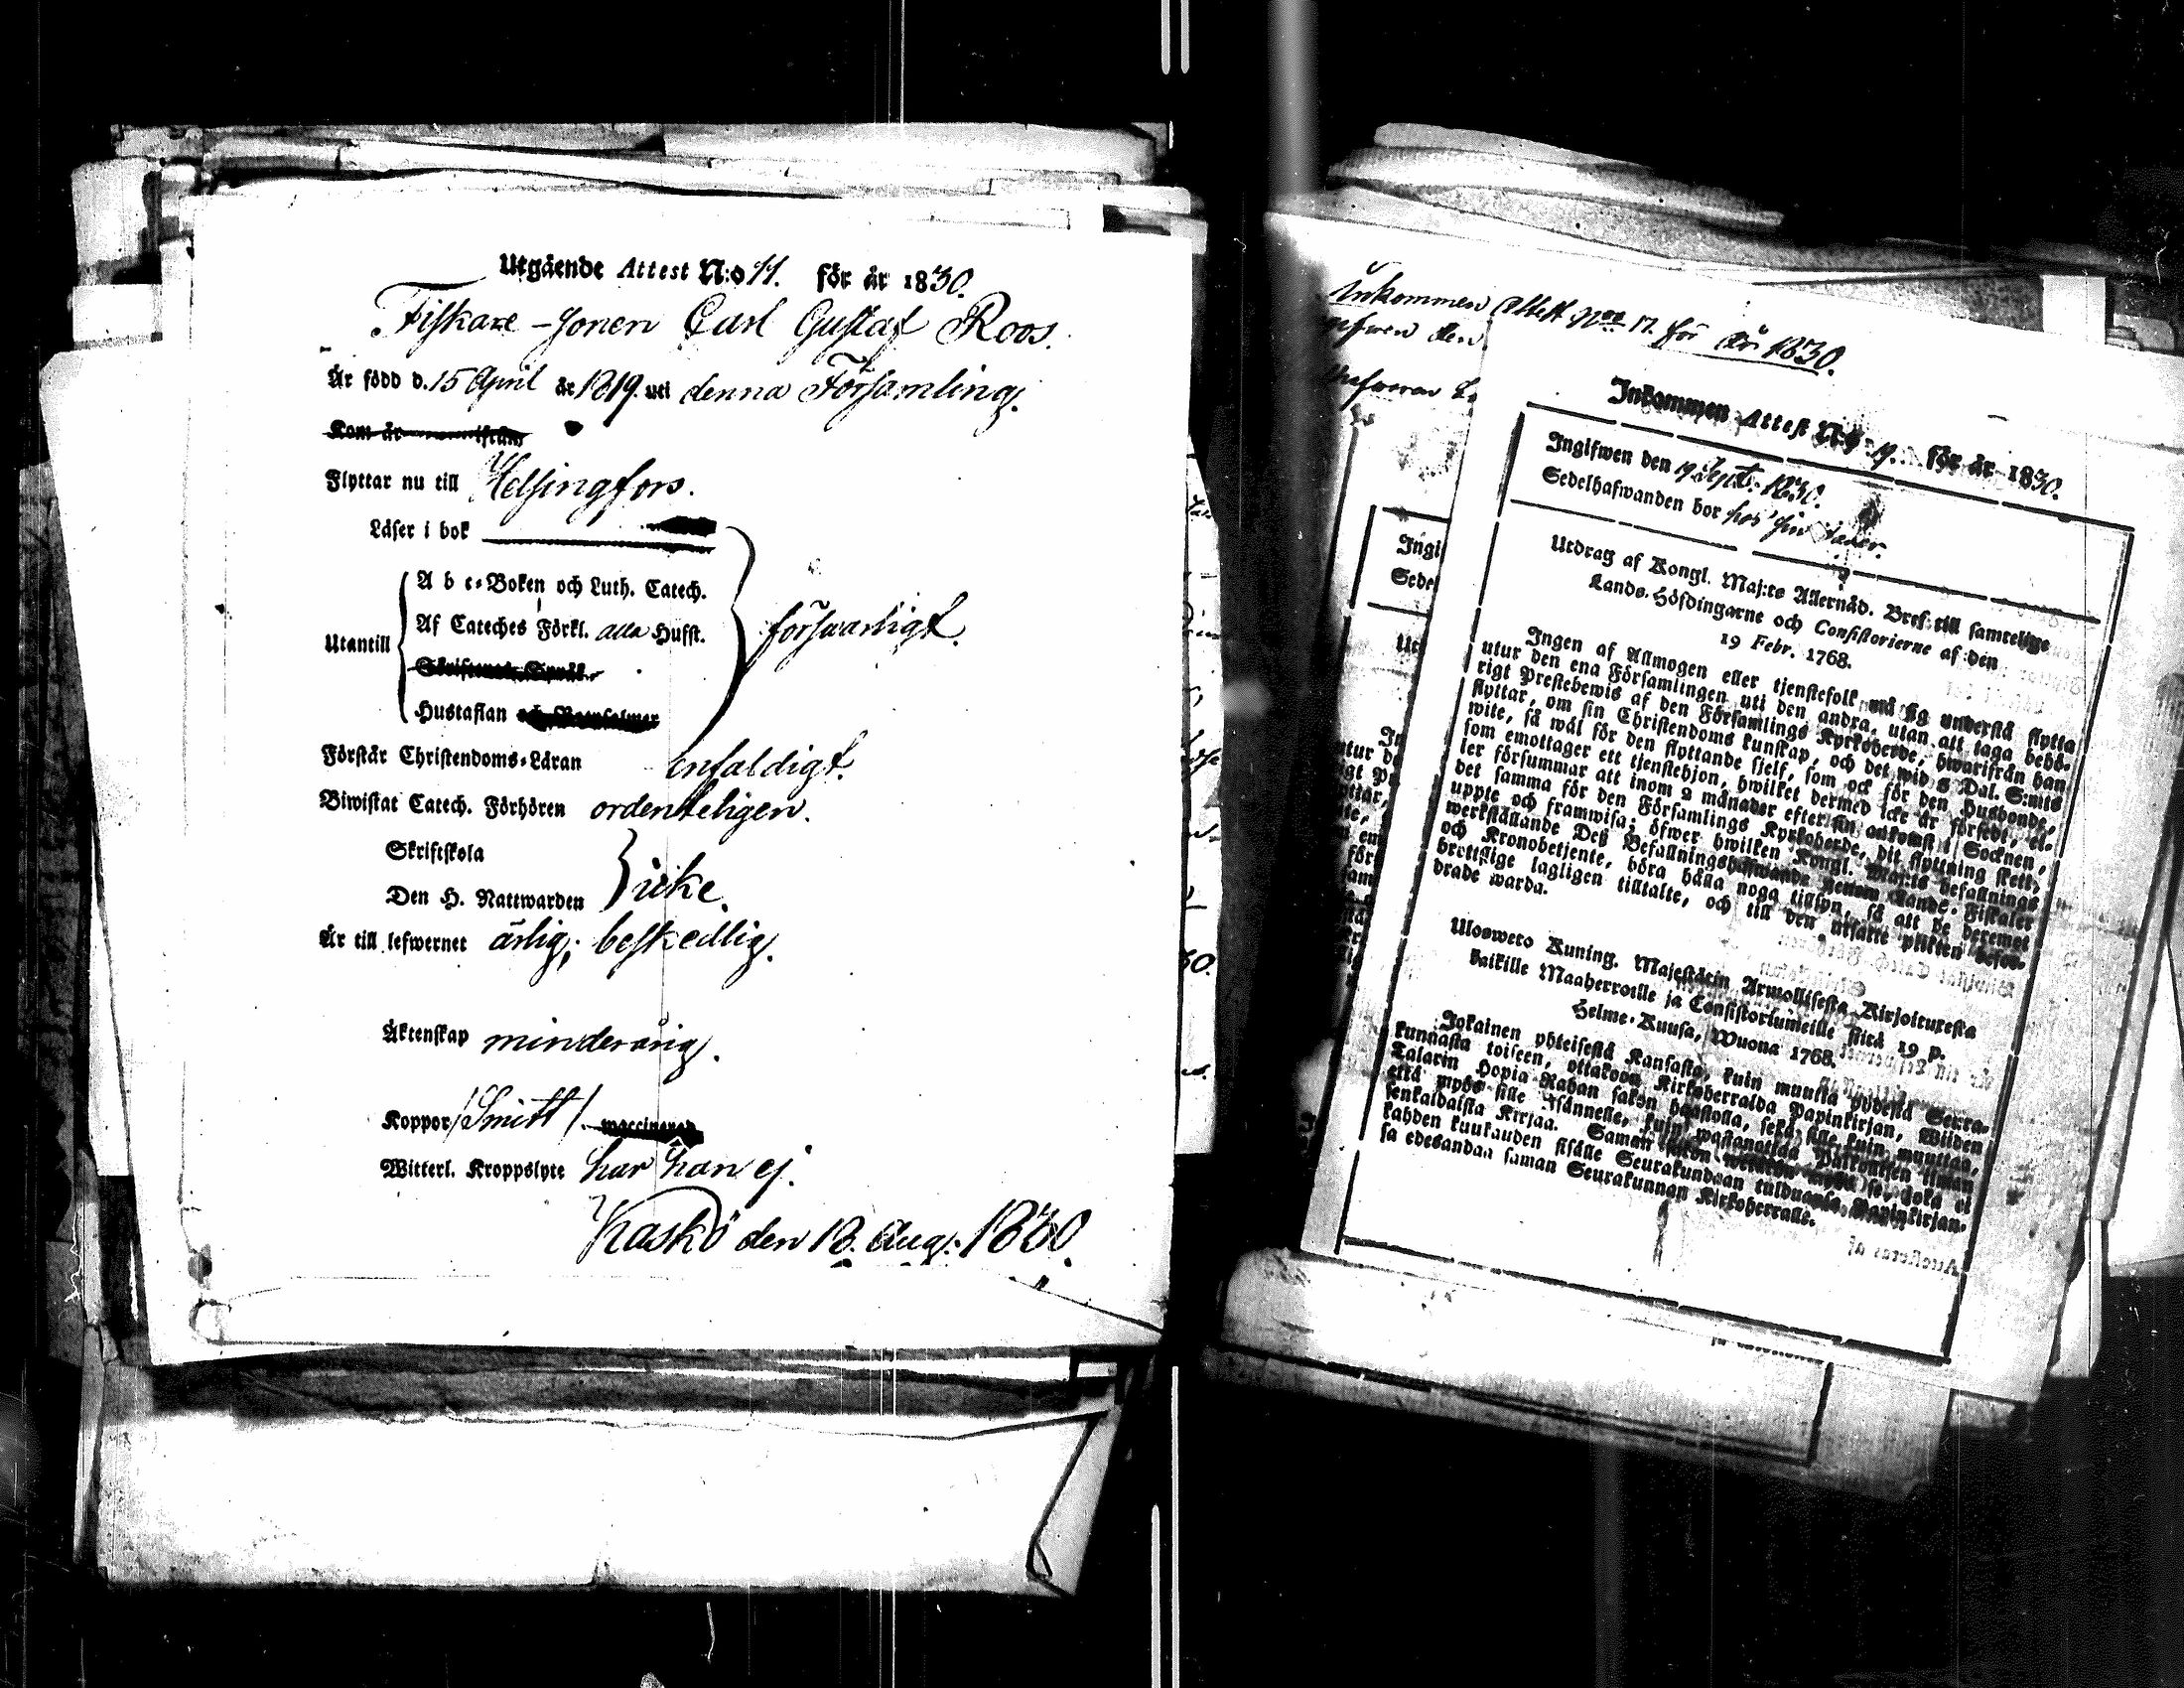 Utgående Attest N:o 11. för år 1830.
Fiskare-sonen Carl Gustaf Roos.
Är född d. 15 April år 1819. uti denna Församling.
Kom år
Flyttar nu till Helsingfors.
Läser i bok
Utantill
A b c-Boken och Luth. Catech.
Af Cateches Förkl. alla Hufst.
försvarligt.
Hustaflan
Förstår Christendoms-Läran enfaldigt.
Biwistat Catech. Förhören ordenteligen.
Skriftskola
Den H. Nattwarden
icke.
Är till lefwernet ärlig; beskedlig.
Äktenskap minderårig.
Koppor /Smitt/
Witterl. Kroppslyte har han ej.
Kaskö den 18. Aug: 1830.
Inkommen Attest N:o 17. för år 1830.
Inkommen Attest N:o 19. för år 1830.
Ingifwen den 19 Sept. 1830.
Sedelhafwanden bor hos sin
Utdrag af Kongl. Maj:ts Allernåd. Bref till samtelige
Lands-Höfdingarne och Consistorierne af den
19 Febr. 1768.
Ingen af Allmogen eller tjenstefolk må sig understå flytta
utur den ena Församlingen uti den andra, utan att taga behö-
rigt Prestebewis af den Församlings Kyrkoherde, hwarifrån han
flyttar, om sin Christendoms kunskap, och det wid 5 Dal. S:mts
wite, så wäl för den flyttande sjelf, som ock för den Husbonde,
som emottager ett tjenstehjon, hwilket dermed icke är försedt, el-
ler försummar att inom 2 månader efter sin ankomst i Socknen,
det samma för den Församlings Kyrkoherde, dit flyttning skett,
uppte och framwisa; öfwer hwilken Kongl. Maj:ts befallnings
werkställande Deß Befallningshafwande genom Lands-Fiskaler
och Kronobetjente, böra hålla noga tillsyn, så att de deremot
brottslige lagligen tilltalte, och till den utsatte plikten befor-
drade warda.
Ulosweto Kuning. Majestätin Armollisesta Kirjoituxesta
kaikille Maaherroille ja Consistoriumeille siitä 19 p.
Helme-Kuusa, Wuona 1768.
Jokainen yhteisestä Kansasta, kuin muutta yhdestä Seura-
kunnasta toiseen, ottakoon Kirkoherralda Papinkirjan, Wiiden
Talarin Hopia Rahan sakon haastolla, sekä sille kuin muuttaa,
että myös sille Isännelle, kuin wastanottaa Palkollisen ilman
senkaldaista Kirjaa. Saman sakon se, joka ei
kahden kuukauden sisälle Seurakundaan tulduansa Papinkirjan-
sa edesandaa saman Seurakunnan Kirkoherralle.